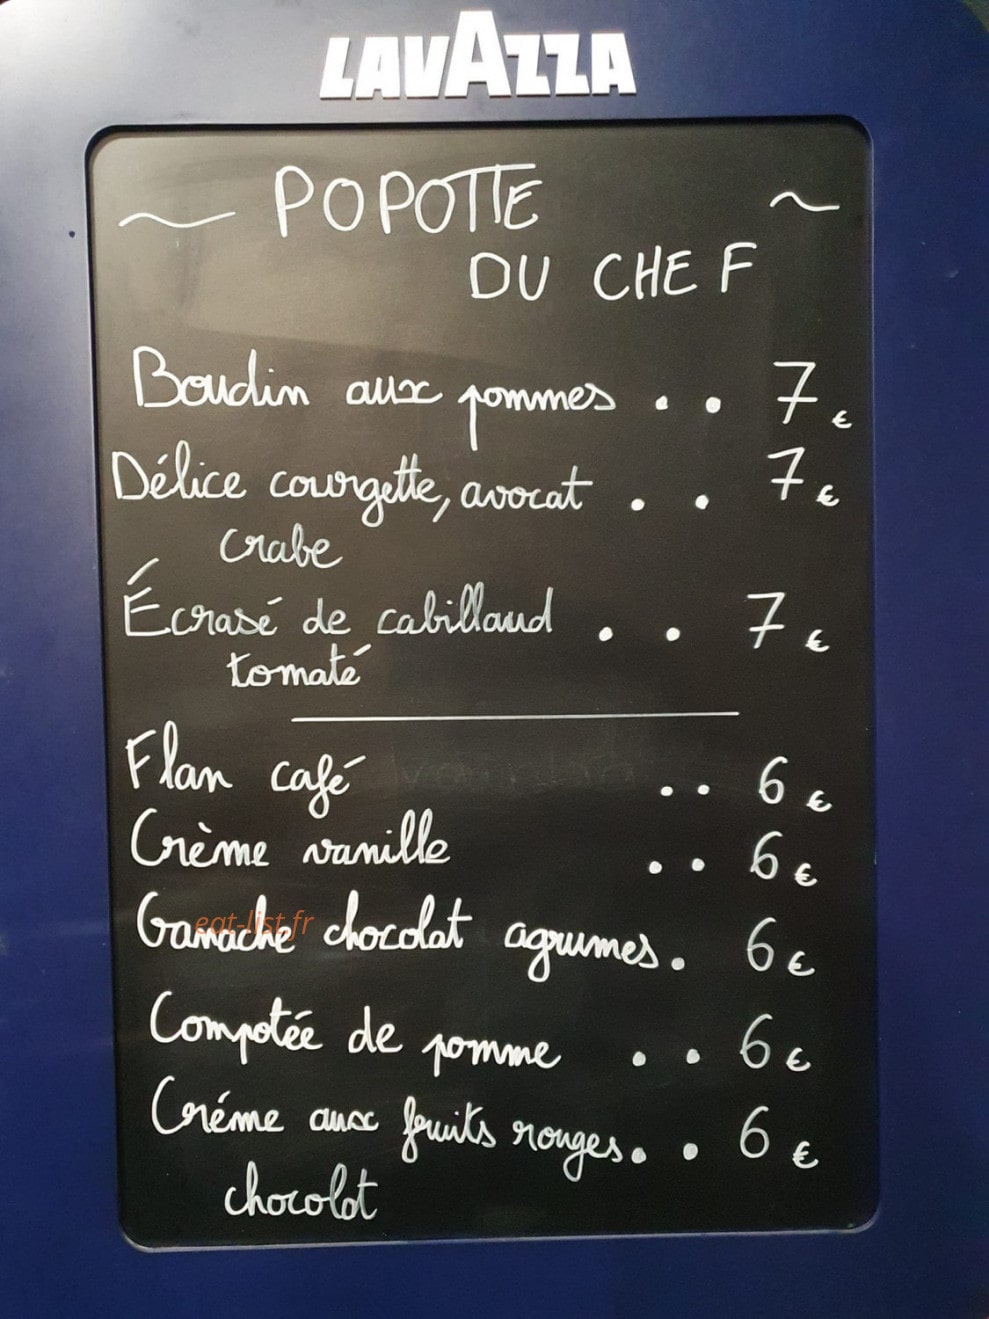 LAVAZZA
~ POPOTTE ~
DU CHEF
Boudin aux pommes . . 7 €
Délice courgette, avocat . . 7 €
crabe
Écrasé de cabillaud . . 7 €
tomaté
Flan café . . 6 €
Crème vanille . . 6 €
Ganache chocolat agrumes . 6 €
eat-list.fr
Compotée de pomme . . 6 €
Créme aux fruits rouges . . 6 €
chocolat